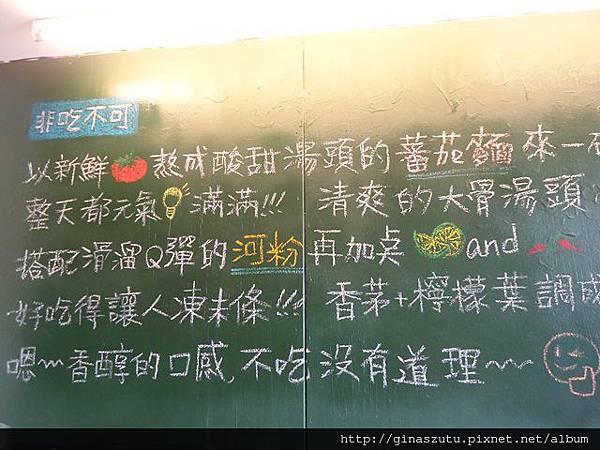 非吃不可
以新鮮🍅熬成酸甜湯頭的蕃茄麵 來一碗
整天都元氣💡滿滿!!! 清爽的大骨湯頭
搭配滑溜Q彈的河粉再加点🍋and🌶
好吃得讓人凍未條!!! 香茅+檸檬葉調成
嗯~~香醇的口感,不吃沒有道理~~
http://ginaszutu.pixnet.net/album